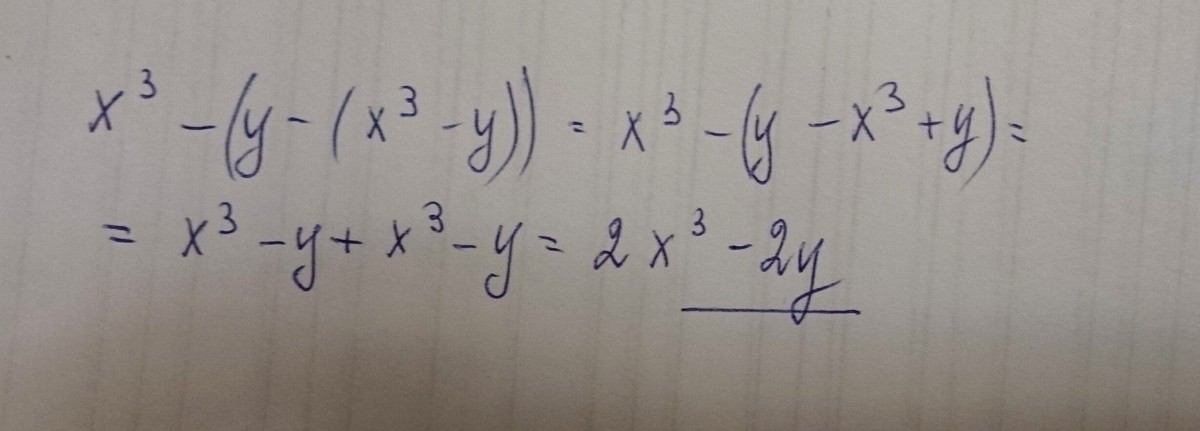 x³ - (y - (x³ - y)) = x³ - (y - x³ + y) =
= x³ - y + x³ - y = 2x³ - 2y